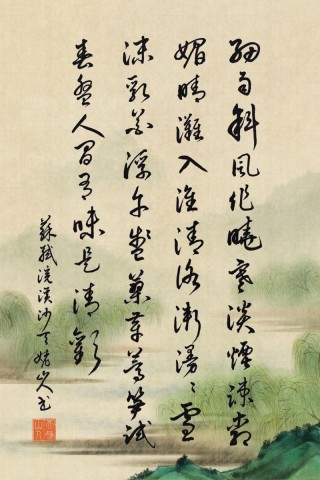 細雨斜風作曉寒淡煙疎柳
媚晴灘入淮清洛漸漫〻雪
沫乳花浮午盞蓼茸蒿笋試
春盤人間有味是清歡
蘇軾浣溪沙天姥山人书